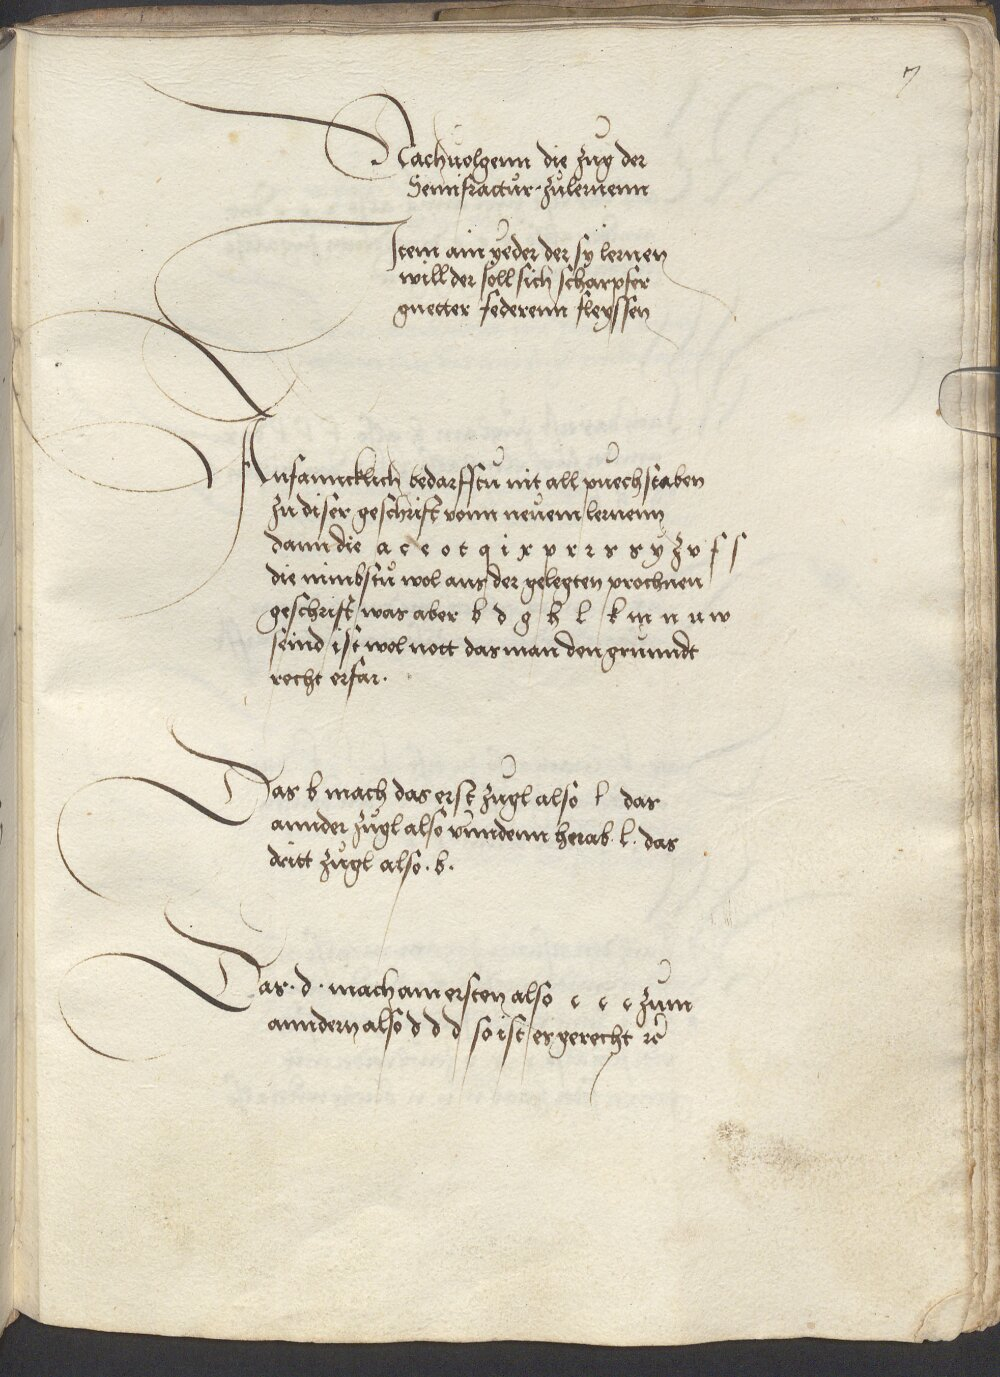 7
Nachuolgenn die zug der
Semifractur · zulernenn
Item ain yeder der sy lernen
will der soll sich scharpfer
guetter federenn fleyssen
Anfanncklich bedarffstu nit all puechstaben
zu diser geschrift vonn neuem lernenn
dann die a c e o t q i x p v r z s s y z v f ſ
die nimbstu wol aus der gelegten prochnen
geschrift was aber b d g h l k m n u w
seind ist wol nott das man den grunndt
recht erfar.
Das b mach das erst zugl also l das
annder zugl also vnndenn herab · l · das
dritt zugl also · b ·
Das · d · mach am ersten also c c c zum
anndern also d d d so ist es gerecht ꝛc̃